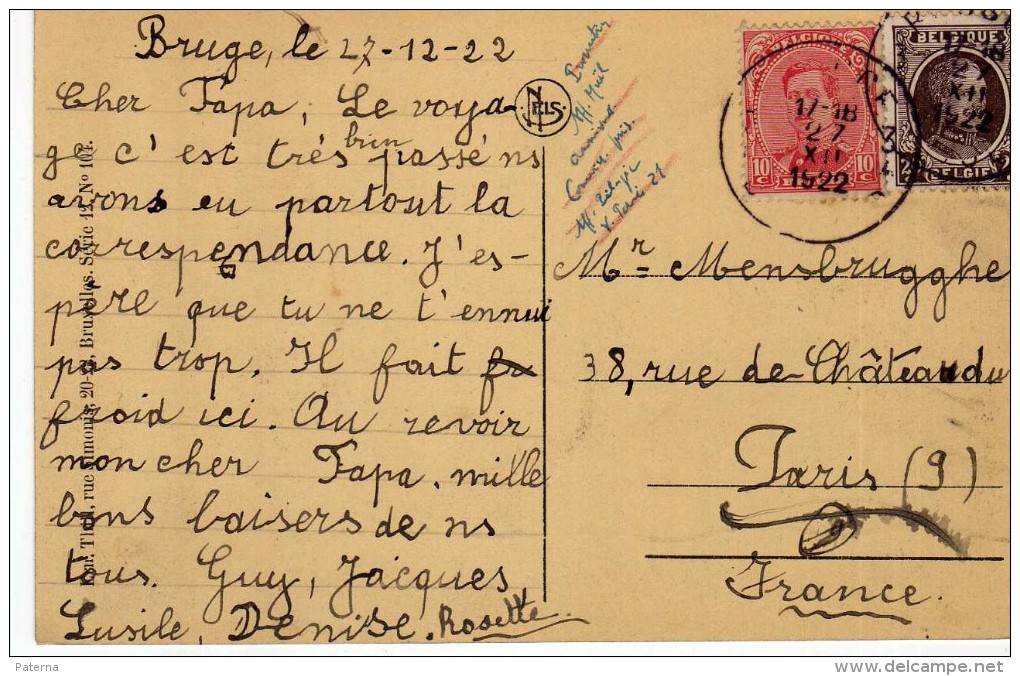 Bruge, le 27-12-22
Cher Papa, Le voya-
ge c'est très bien passé ns
avons eu partout la
correspendance. J'es-
père que tu ne t'ennui
pas trop. Il fait
froid ici. Au revoir
mon cher Papa, mille
bons baisers de ns
tous. Guy, Jacques
Lusile, Denise, Rosette
NELS
BELGIQUE
10 C 10 C
17-18
27
XII
1922
BELGIQUE
BELGIË
17-18
27
XII
1922
Mr Mensbrugghe
38, rue de Châteaudu
Paris (9)
9
France.
Ern. Thill, rue Simons, 20-22, Bruxelles. Série 12, No 104.
Paterna
www.delcampe.net